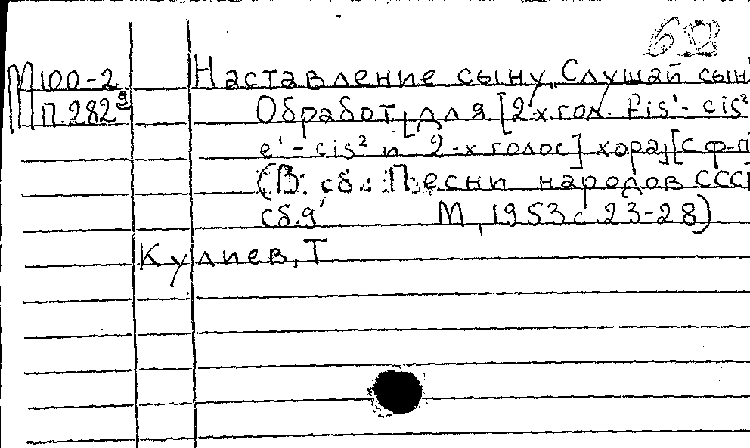 68
М100-2 Наставление сыну „Слушай сын
П.282⁹ Обработ. для [2х гол. fis'-cis²
e'-cis² и 2-х голос] хора, [с ф-п
(В: сб.: Песни народов СССР
сб. 9 М, 1953 с 23-28)
Кулиев, Т